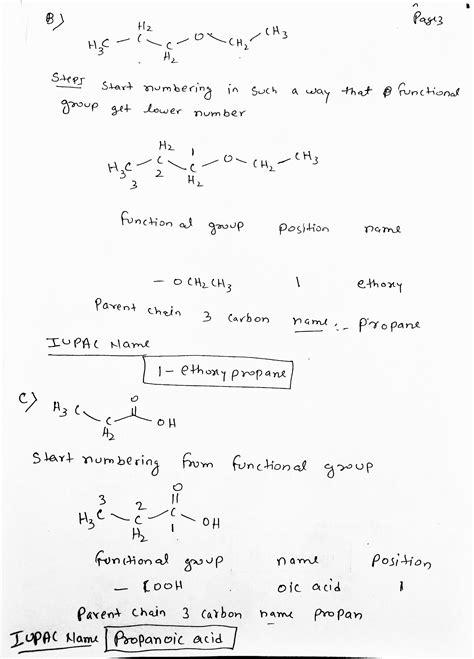 Page3
B) H3C - C H2 - C H2 - O - CH2 - CH3
Steps Start numbering in such a way that functional
group get lower number
H3C - C H2 - C H2 - O - CH2 - CH3
3 2 1
functional group position name
- OCH2CH3 1 ethoxy
Parent chain 3 carbon name :- Propane
IUPAC Name
1- ethoxypropane
C) H3C - C H2 - C O - OH
Start numbering from functional group
3 2 1
H3C - C H2 - C O - OH
functional group name Position
- COOH oic acid 1
Parent chain 3 carbon name propan
IUPAC Name Propanoic acid